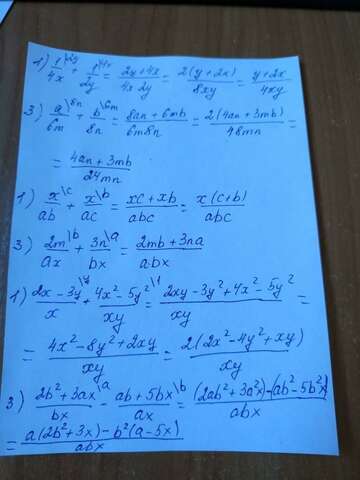 1) 1/4x \2y + 1/2y \4x = 2y+4x/4x 2y = 2(y+2x)/8xy = y+2x/4xy
3) a/6m \8n + b/8n \6m = 8an+6mb/6m8n = 2(4an+3mb)/48mn =
= 4an+3mb/24mn
1) x/ab \c + x/ac \b = xc+xb/abc = x(c+b)/abc
3) 2m/ax \b + 3n/bx \a = 2mb+3na/abx
1) 2x-3y/x \y + 4x²-5y²/xy \1 = 2xy-3y²+4x²-5y²/xy =
= 4x²-8y²+2xy/xy = 2(2x²-4y²+xy)/xy
3) 2b²+3ax/bx \a - ab+5bx/ax \b = (2ab²+3a²x)-(ab²-5b²x)/abx
= a(2b²+3x)-b²(a-5x)/abx